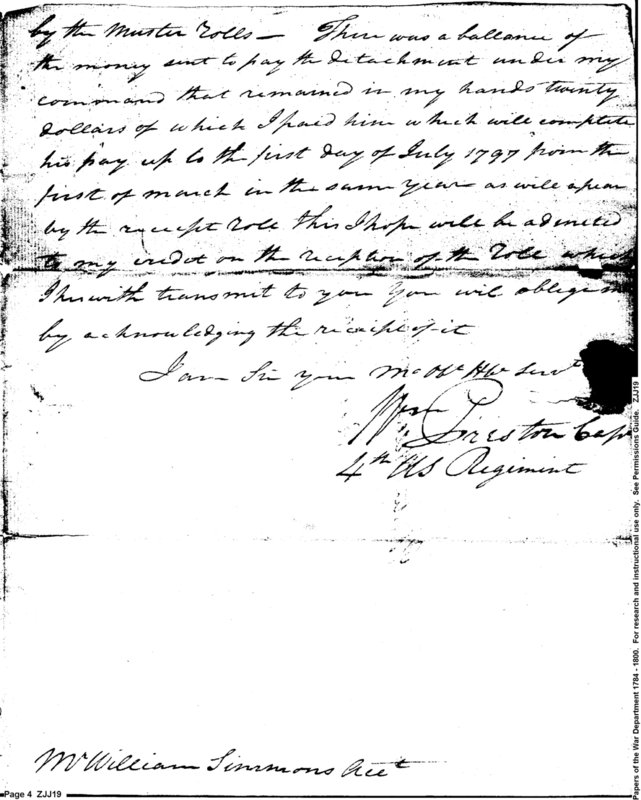 by the Muster Rolls — There was a ballance of
the money sent to pay the detachment under my
command that remained in my hands twenty
dollars of which I paid him which will complete
his pay up to the first day of July 1797 from the
first of march in the same year as will apear
by the receipt Role this I hope will be admited
to my credot on the reception of the Role which
I herwith transmit to you You wil oblige me
by acknowledging the receipt of it
I am Sir your Mo Obt Hbe Servt
Wm Preston Capt
4th US Regiment
Mr William Simmons Acct
Page 4 ZJJ19
Papers of the War Department 1784 - 1800. For research and instructional use only. See Permissions Guide. ZJJ19